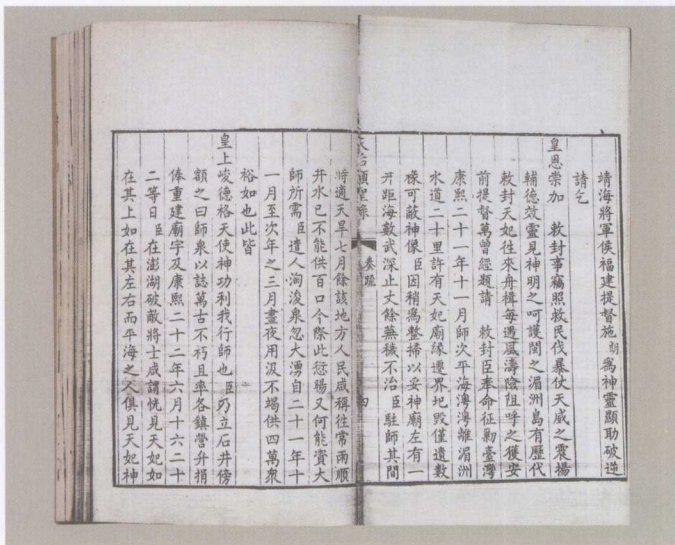 靖海將軍侯福建提督施為神靈顯助破逆
請乞
皇恩崇加 敕封事竊照救民伐暴仗天威之震揚
輔德效靈見神明之呵護閩之湄洲島有歷代
敕封天妃往來舟楫每遇風濤險阻呼之獲安
前提督萬曾經題請 敕封臣奉命征勦臺灣
康熙二十一年十一月師次平海澳澳離湄洲
水道二十里許有天妃廟緣遷界圮毀僅遺數
椽可蔽神像臣因稍為整掃以妥神廟左有一
井距海數武深止丈餘蕪穢不治臣駐師其間
天后顯聖錄
奏疏
四
將適天旱七月餘該地方人民咸稱往常雨順
井水已不能供百口今際此愆暘又何能資大
師所需臣遣人淘浚泉忽大湧自二十一年十
一月至次年之三月晝夜用汲不竭供四萬衆
裕如也此皆
皇上峻德格天使神功利我行師也臣乃立石井傍
額之曰師泉以誌萬古不朽且率各鎮營升捐
俸重建廟宇及康熙二十二年六月十六二十
二等日臣在澎湖破敵將士咸謂恍見天妃如
在其上如在其左右而平海之人俱見天妃神